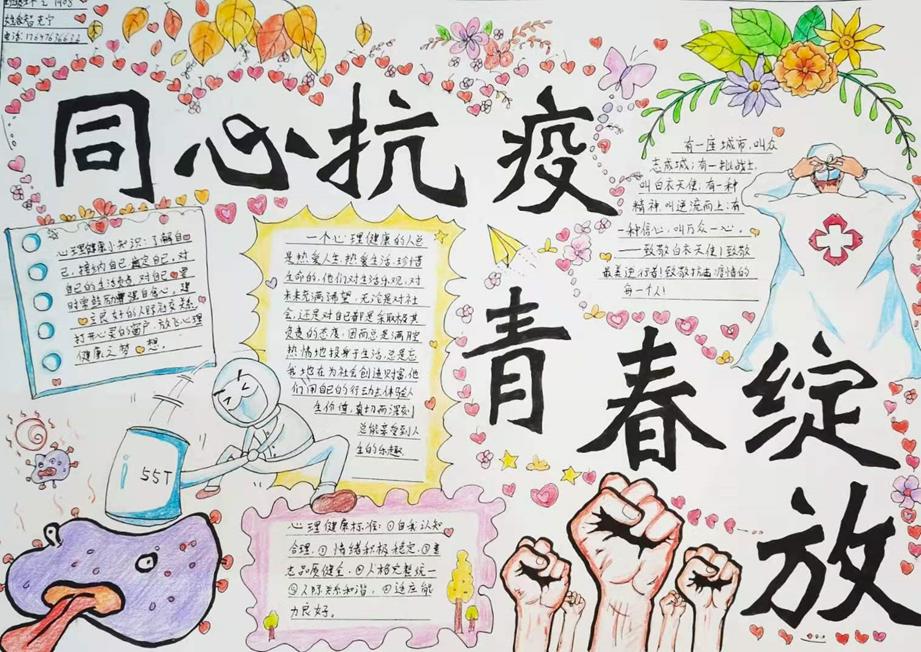 同心抗疫
青春绽放
心理健康小知识：了解自
己，接纳自己肯定自己，对
自己的生活负责，对自己
时常鼓励增强自信心，建
立良好的人际好交关系
打开心灵的窗户，放飞心理
健康之梦想。
一个心理健康的人总
是热爱人生，热爱生活，珍惜
生命的，他们对生活乐观，对
未来充满希望，无论是对社
会，还是对自己都是采取极其
负责的态度，因而总是满腔
热情地投身于生活，总是忘
我地在为社会创造财富，他
们用自己的行动去体验人
生价值，真切而深刻
总能享受到人
生的乐趣
有一座城市，叫众
志成城；有一批战士，
叫白衣天使；有一种
精神，叫逆流而上；有
一种信心，叫万众一心。
——致敬白衣天使！致敬
最美逆行者！致敬抗击疫情的
每一个人！
55T
心理健康标准：①自我认知
合理，②情绪积极稳定，③意
志品质健全，④人格完整统一
⑤人际关系和谐，⑥适应能
力良好。